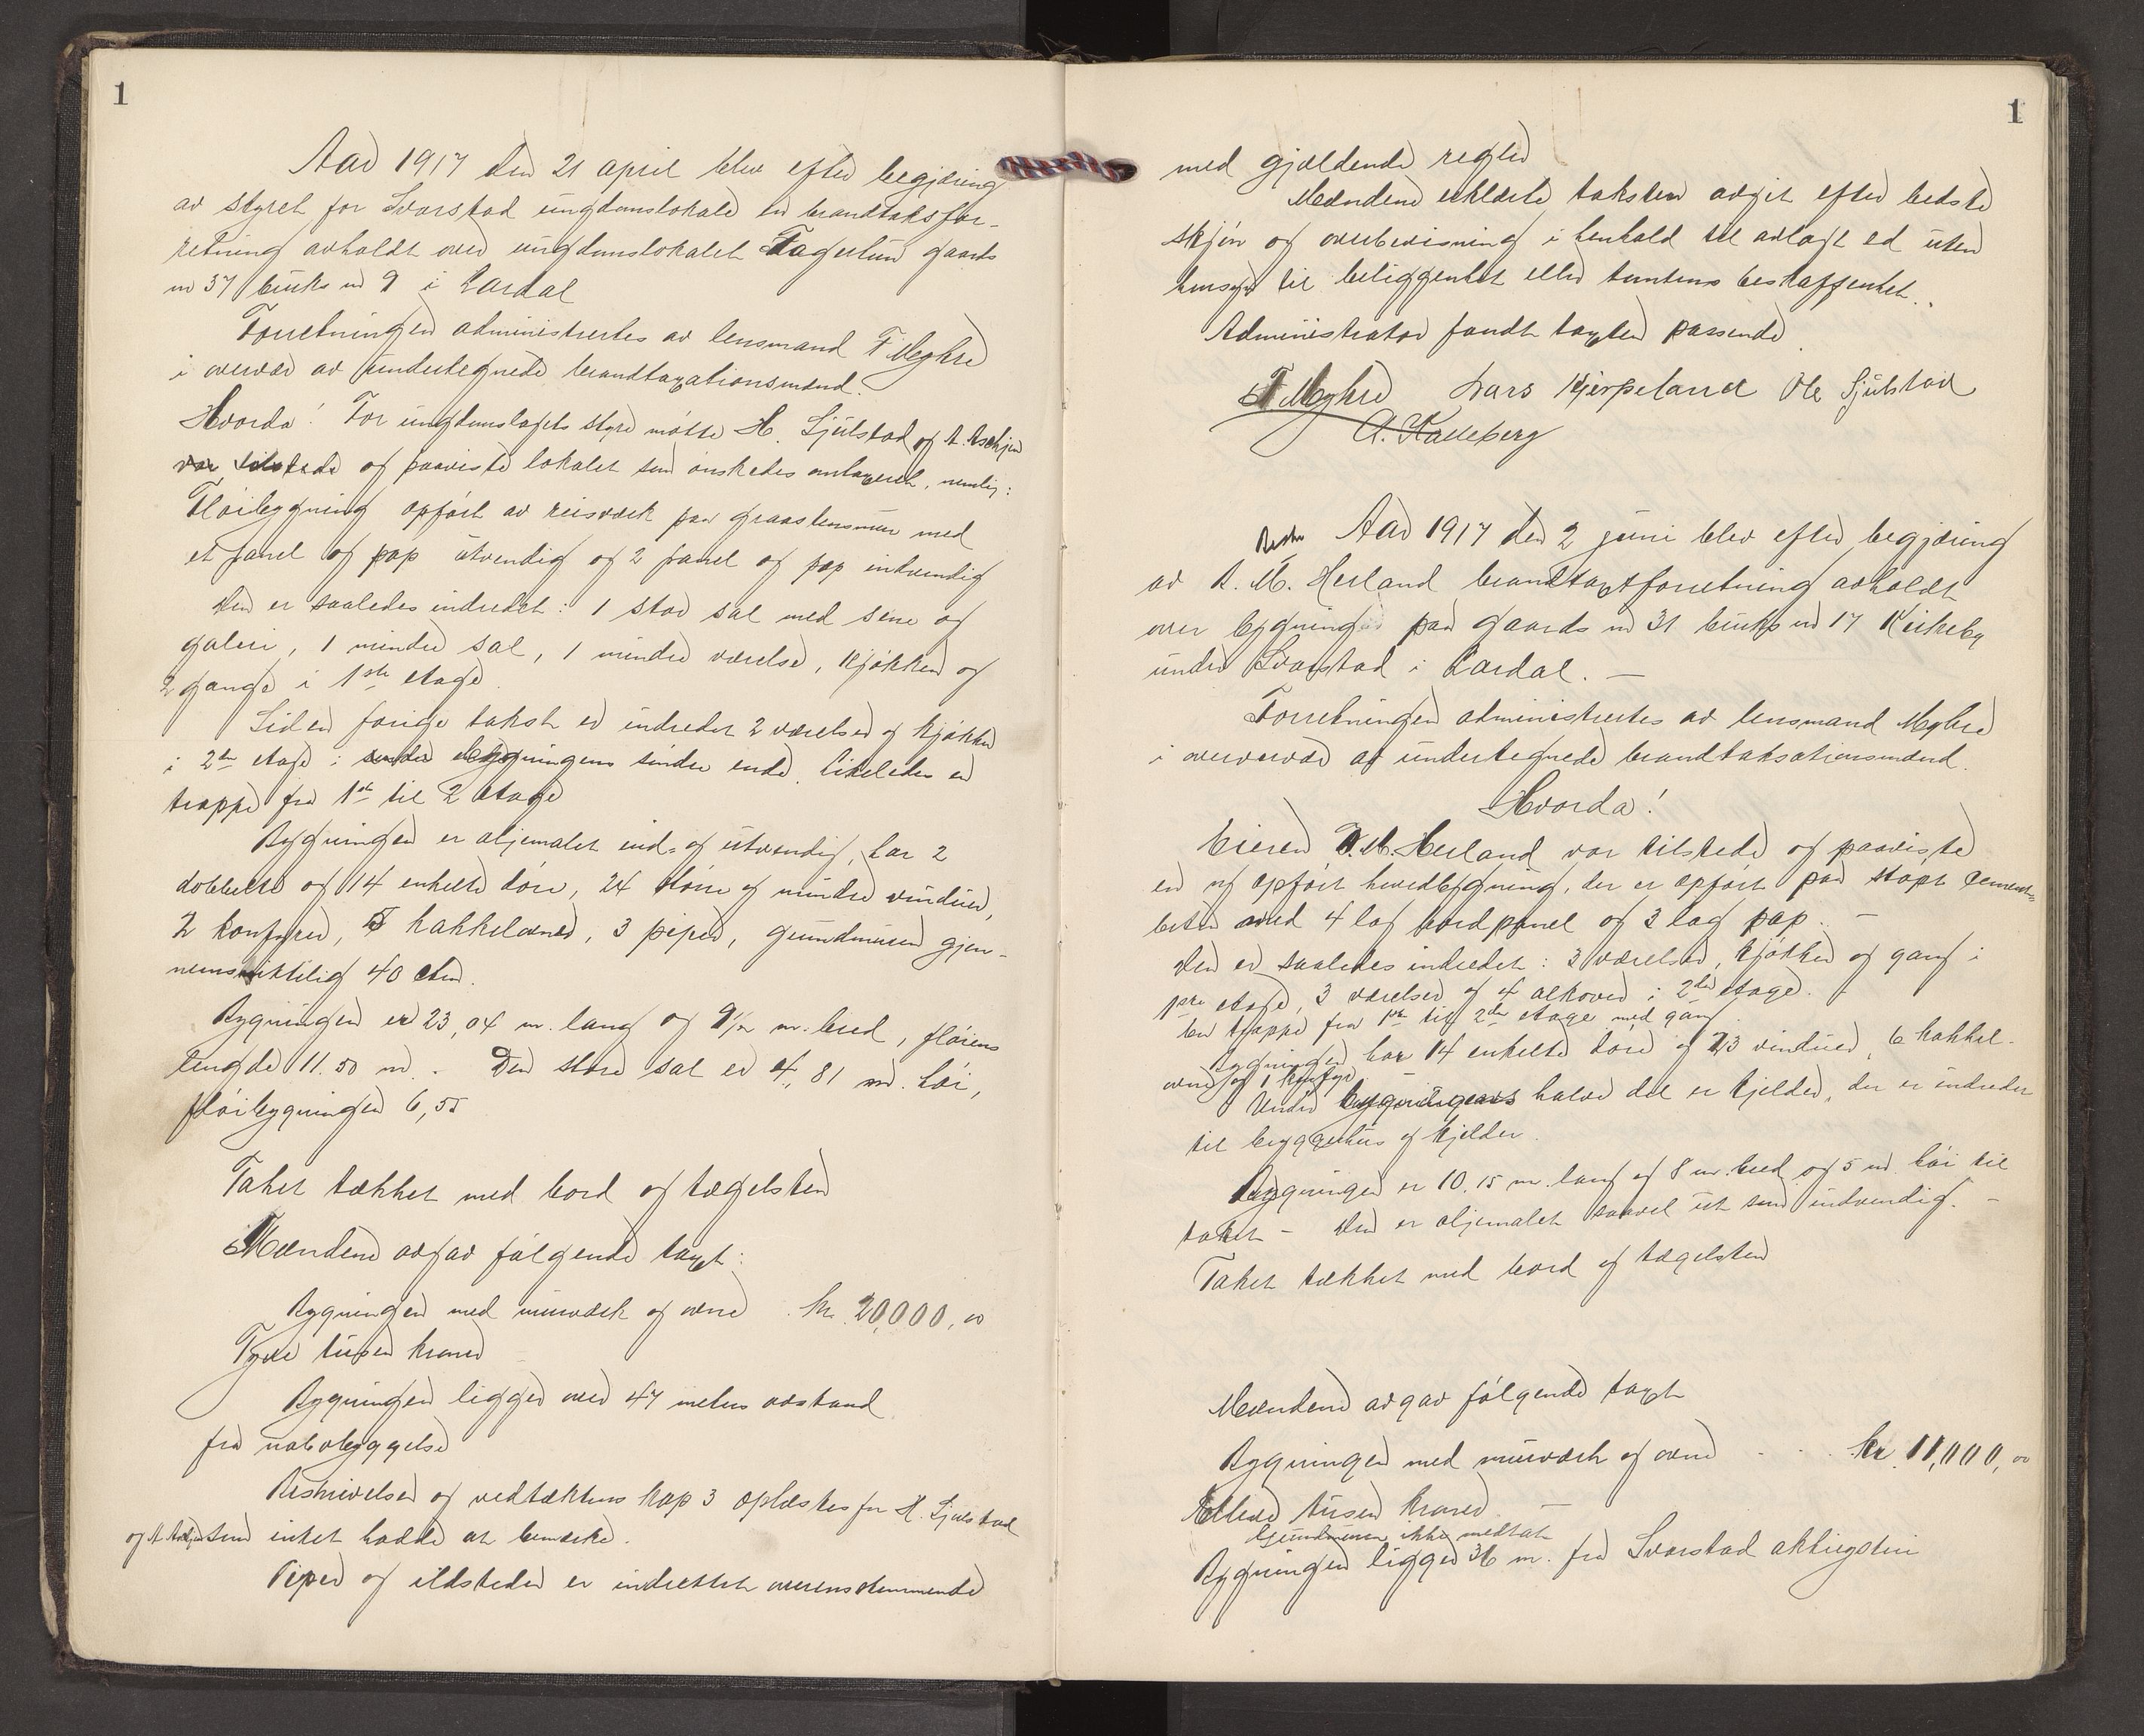 1
Aar 1917 den 21 april blev efter begjæring
av styret for Svarstad ungdomslokale en brandtaksfor-
retning avholdt over ungdomslokalet Fagerlund gaards
nr 37 bruks nr 9 i Lardal
Forretningen administrertes av lensmand F Myhre
i overvær av undertegnede brandtaxationsmænd.
Hvorda! For ungdomslagets styre møtte H. Sjulstad og A. Askjem
var tilstede og paaviste lokalet som ønskedes omtaxeret, nemlig:
Fløibygning opført av reisverk paa graastensmur med
et panel og pap utvendig og 2 panel og pap indvendig
Den er saaledes indredet: 1 stor sal med sene og
galeri, 1 mindre sal, 1 mindre værelse, kjøkken og
2 gange i 1ste etage
Siden forige takst er indredet 2 værelser og kjøkken
i 2den etage i bygningens søndre ende. likeledes en
trappe fra 1ste til 2 etage
Bygningen er oljemalet ind- og utvendig, har 2
dobbelte og 14 enkelte døre, 24 større og mindre vinduer,
2 komfyrer, 5 kakkelovner, 3 piper, grundmuren gjen-
nemsniktlig 40 ctm.
Bygningen er 23,04 m. lang og 9 1/2 m. bred, fløiens
lengde 11.50 m. Den store sal er 4,81 m. høi,
fløibygningen 6,55
Taket tækket med bord og tægelsten
Mændene avgav følgende taxt:
Bygningen med murværk og ovne kr. 20,000,00
Tyve tusen kroner
Bygningen ligger over 47 meters avstand
fra nabobyggelse
Beskrivelsen og vedtækternes kap 3 oplæstes for H. Sjulstad
og A. Askjem som intet hadde at bemerke.
Piper og ildsteder er indrettet overensstemmende
1
med gjældende regler
Mændene erklærte taksten avgit efter bedste
skjøn og overbevisning i henhold til avlagt ed uten
hensyn til beliggenhet eller tomtens beskaffenhet.
Administrator fandt taxten passende
F Myhre Lars Kjerpeland Ole Sjulstad
A. Kalleberg
Aar 1917 den 2 juni blev efter begjæring
av A. M. Herland brandtaxtforretning avholdt
over bygning paa gaards nr 31 bruks nr 17 Kirkeby
under Svarstad i Lardal. —
Forretningen administrertes av lensmand Myhre
i overvær af undertegnede brandtaksationsmænd.
Hvorda!
Eieren A. M. Herland var tilstede og paaviste
en ny opført hovedbygning, der er opført paa støpt cement
med 4 lag bordpanel og 3 lag pap. —
Den er saaledes indredet: 3 værelser, kjøkken og gang i
1ste etage, 3 værelser og 4 alkover i 2den etage.
En trappe fra 1ste til 2den etage med gang.
Bygningen har 14 enkelte døre og 23 vinduer, 6 kakkel-
ovner og 1 komfyr
Under bygningens halve del er kjelder, der er indredet
til bryggehus og kjelder.
Bygningen er 10.15 m. lang og 8 m. bred og 5 m høi til
taket - Den er oljemalet saavel ut som indvendig. —
Taket tækket med bord og tægelsten
Mændene avgav følgende taxt
Bygningen med murværk og ovne . . . kr. 11,000,00
Elleve tusen kroner —
Grundmuren ikke medtat
Bygningen ligger 36 m. fra Svarstad